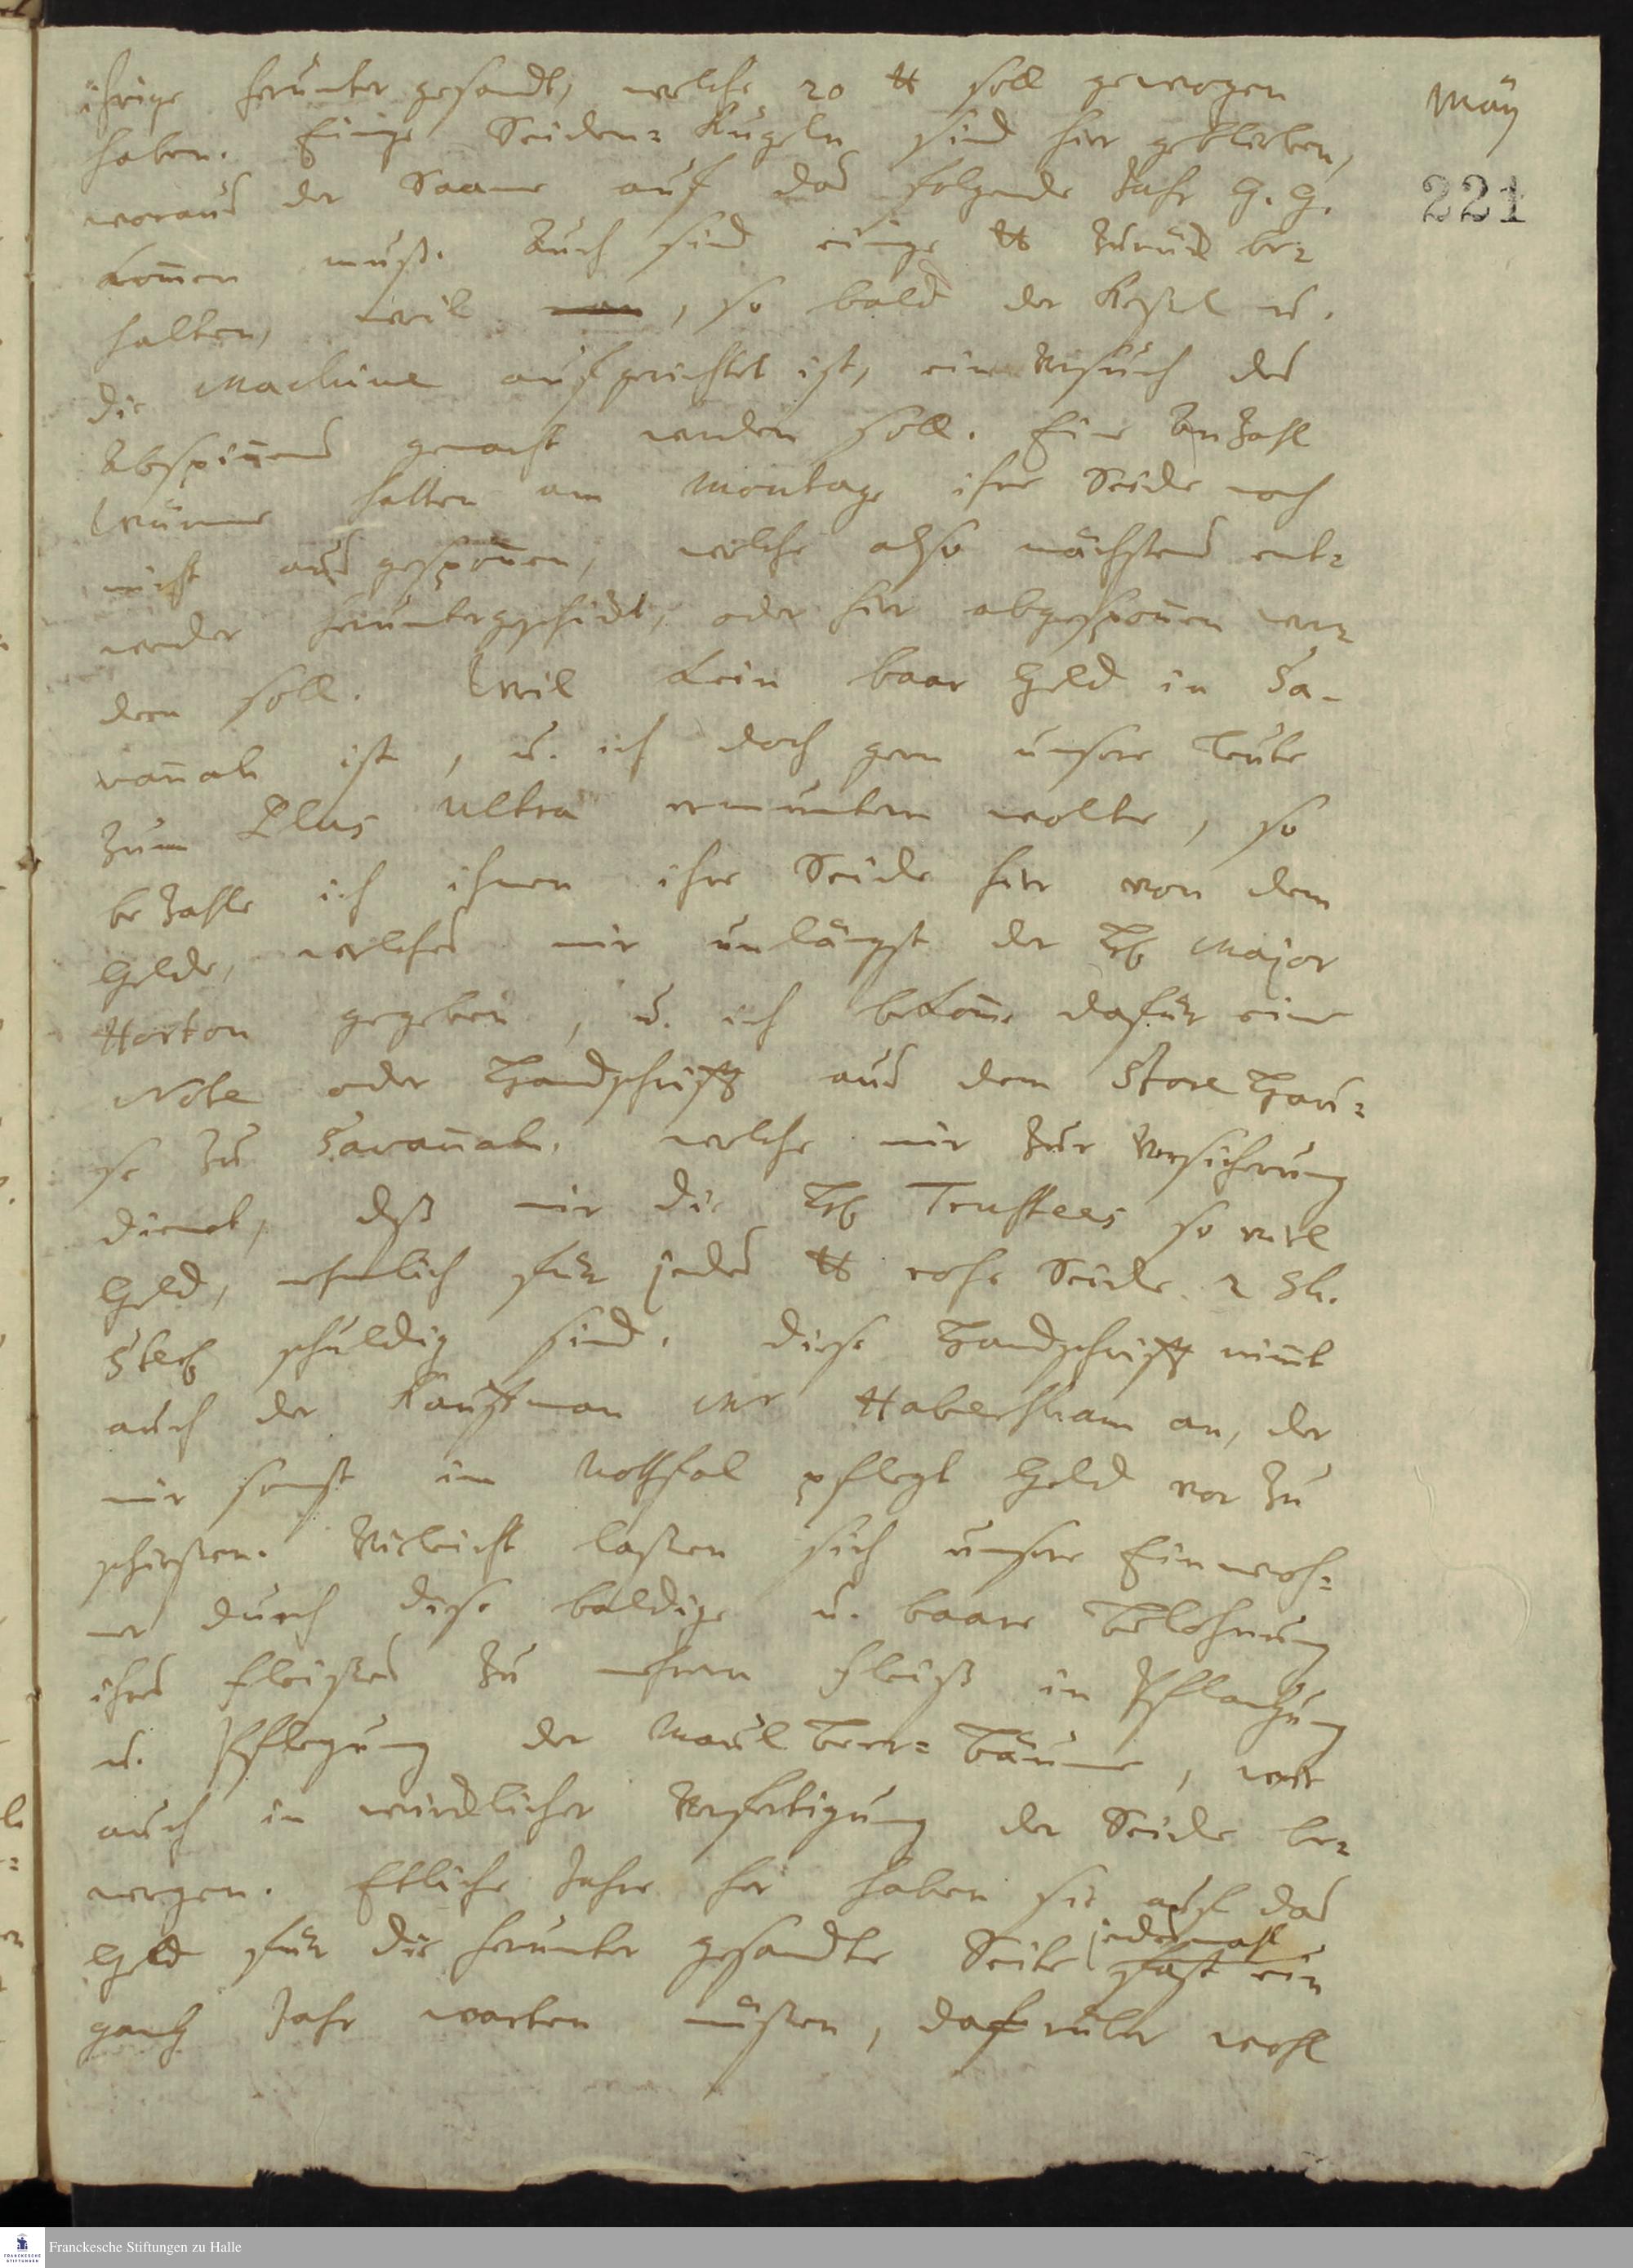 ihrige herunter gesandt, welche 20 ℔ soll gewogen
May
haben. Einige Seiden-Kugeln sind hier geblieben,
221
woraus der Saame auf das folgende Jahr G. G.
kom̄en muß. Auch sind einige ℔ zurück be-
halten, weil man, so bald der Keßel u.
die Machine aufgerichtet ist, ein Versuch des
Abspin̄ens gemacht werden soll. Eine Anzahl
Würme hatten am Montage ihre Seide noch
nicht ausgespon̄en, welche also nächstens ent-
weder heruntergeschickt, oder hier abgespon̄en wer-
den soll. Weil kein baar Geld in Sa-
van̄ah ist, u. ich doch gern unsere Leute
zum Plus Ultra ermuntern wolte, so
bezahle ich ihnen ihre Seide hier von dem
Gelde, welches mir unlängst der Hℓ Major
Horton gegeben, u. ich bekom̄e dafür eine
Note oder Handschrifft aus dem Store Hau-
se zu Savan̄ah, welche mir zur Versicherung
dienet, dß mir die Hℓ Trustees so viel
Geld, nehmlich für jedes ℔ rohe Seide 2 Sh.
Sterℓ schuldig sind. Diese Handschrifft nim̄t
auch der Kauffman Mr Habersham an, der
mir sonst im Nothfal pflegt Geld vor zu
schießen. Vieleicht laßen sich unsere Einwoh-
ner durch diese baldige u. baare Belohnung
ihres Fleißes zu mehrern Fleiß in Pflantzung
u. Pflegung der Maul Beer-Bäume, wie
auch in würcklicher Verfertigung der Seide be-
wegen. Etliche Jahre her haben sie auf das
Geld für die herunter gesandte Seite jedesmahl fast ein
gantz Jahr warten müßen, darüber wohl
Franckesche Stiftungen zu Halle